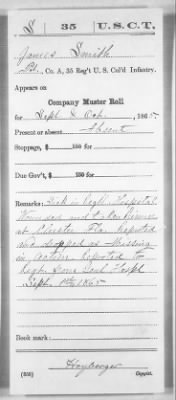 S 35 U.S.C.T.
James Smith
Pvt., Co. A, 35 Reg't U. S. Col'd Infantry.
Appears on
Company Muster Roll
for Sept & Oct, 1865.
Present or absent Absent
Stoppage, $ 100 for
Due Gov't, $ 100 for
Remarks: Sick in Regtl Hospital
Wounded and taken Prisoner
at Olustee Fla. Reported
and dropped as Missing
in Action. Reported to
Regt from Genl Hospl
Sept 1865
Book mark:
Copyist.